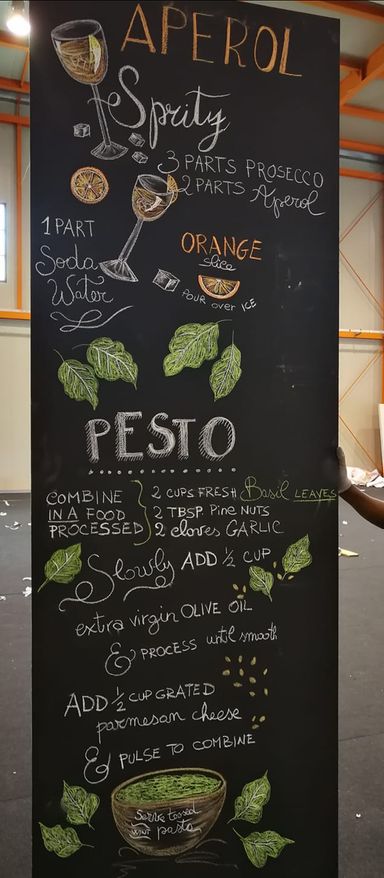 APEROL
Sprity
3 PARTS PROSECCO
2 PARTS Aperol
1 PART
Soda
Water
ORANGE
slice
POUR OVER ICE
PESTO
COMBINE
IN A FOOD
PROCESSED
2 CUPS FRESH Basil LEAVES
2 TBSP PINE NUTS
2 cloves GARLIC
Slowly ADD 1/2 CUP
extra virgin OLIVE OIL
& PROCESS until smooth
ADD 1/2 CUP GRATED
parmesan cheese
& PULSE TO COMBINE
Serve tossed
with pasta